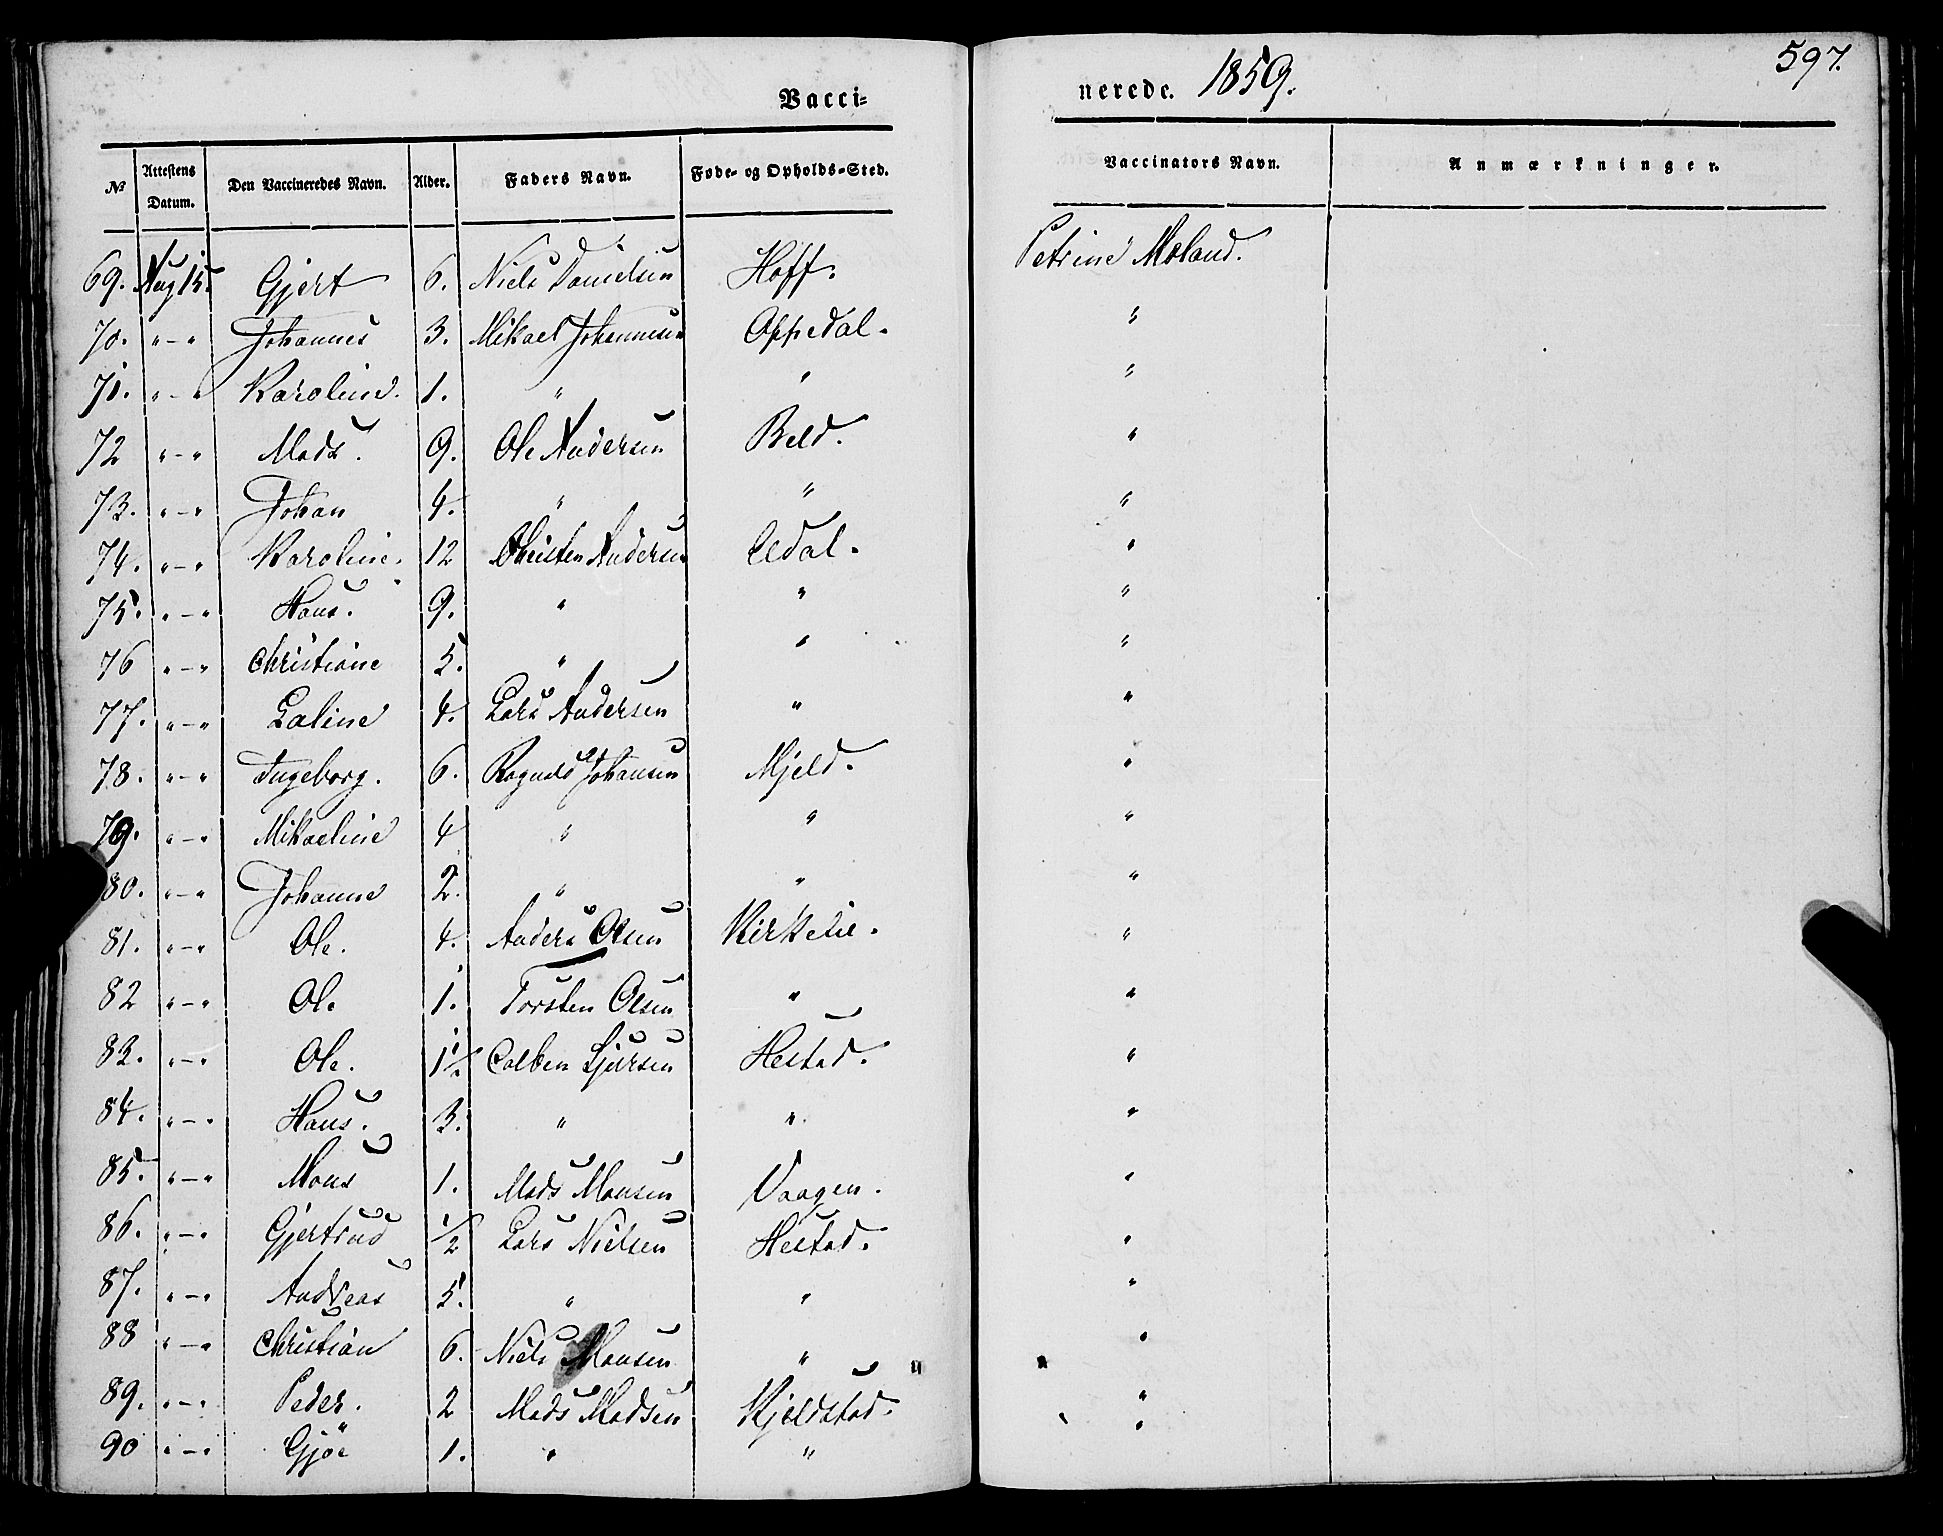 597.
Vaccinerede. 1859.
№ Attestens Datum. Den Vaccineredes Navn. Alder. Faders Navn. Føde- og Opholds-Sted. Vaccinators Navn. Anmærkninger.
69. Aug 15. Gjert 6. Niels Danielsen Hoff. Petrine Moland.
70. " - " Johannes 3. Mikael Johannesen Oppedal. "
71. " - " Karoline. 1. " " "
72 " - " Mads. 9. Ole Andersen Beld. "
73. " - " Johan 4. " " "
74. " - " Karoline. 12 Christen Andersen Aedal. "
75. " - " Hans. 9. " " "
76 " - " Christiane 5. " " "
77. " - " Laline 4. Lars Andersen " "
78. " - " Ingeborg. 6. Rognald Johansen Mjeld. "
79. " - " Mikaeline 4 " " "
80. " - " Johanne 2. " " "
81. " - " Ole. 4. Anders Olsen Kirkelie. "
82 " - " Ole 1. Torsten Olsen " "
83. " - " Ole. 1½ Colben Sjursen Hestad. "
84. " - " Hans. 3. " " "
85. " - " Mons 1. Mads Monsen Vaagen. "
86. " - " Gjertrud ½ Lars Nielsen Hestad. "
87. " - " Andreas 5. " " "
88 " - " Christian 6. Niels Monsen " "
89. " - " Peder. 2 Mads Madsen Kjeldstad. "
90 " - " Gjøe 1. " " "